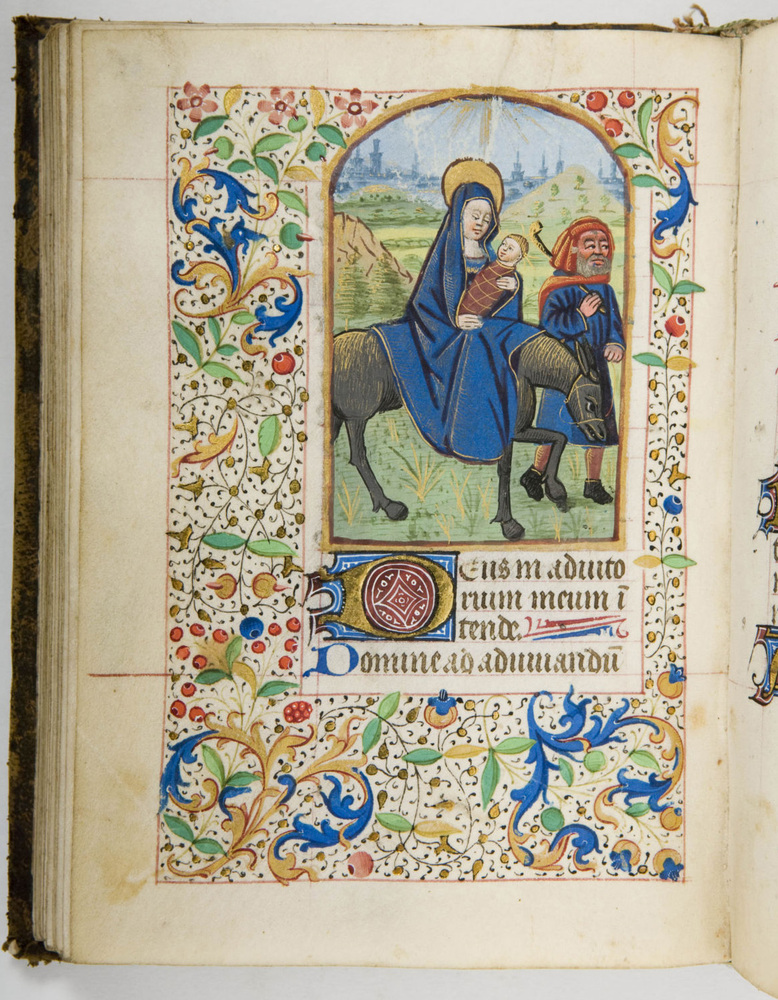 Deus in adiuto
rium meum ī
tende.
Domine ad adiuuandū